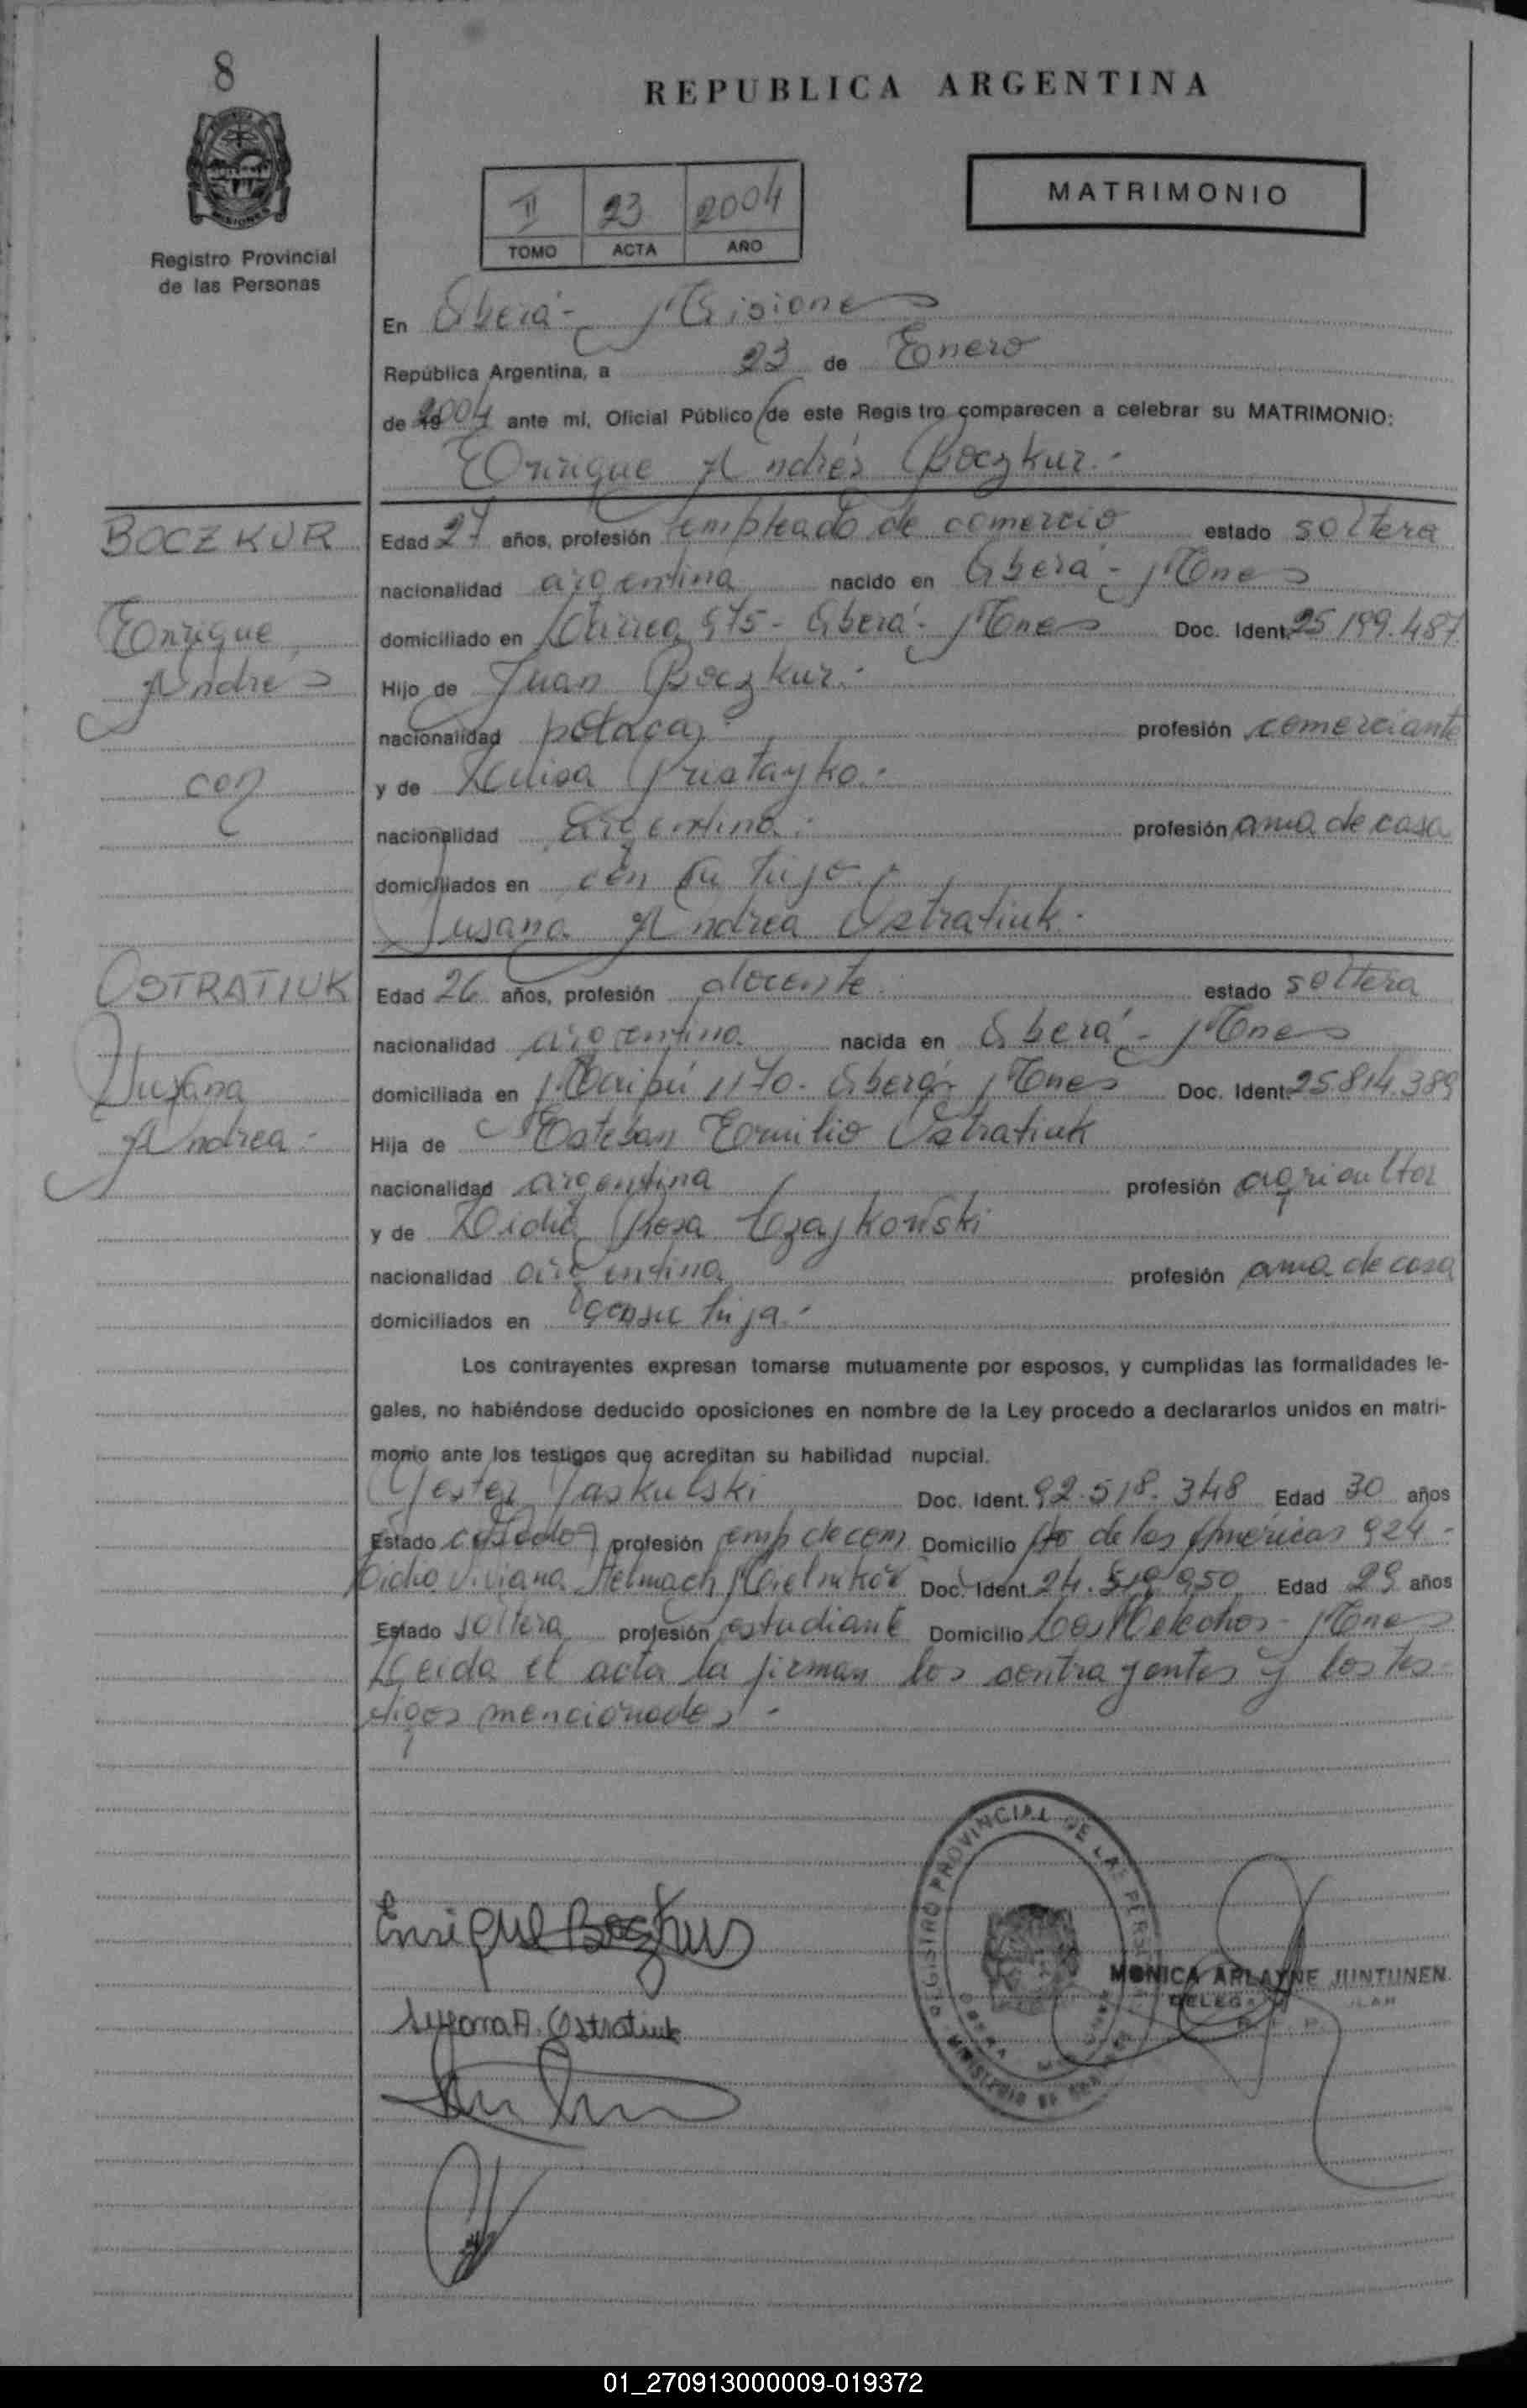 8
REPUBLICA ARGENTINA
MATRIMONIO
II 23 2004
TOMO ACTA AÑO
Registro Provincial
de las Personas
MISIONES
En Oberá - Misiones
República Argentina, a 23 de Enero
de 2004 ante mí, Oficial Público de este Registro comparecen a celebrar su MATRIMONIO:
Enrique Andrés Boczkur.-
BOCZKUR
Enrique
Andres
con
Edad 27 años, profesión empleado de comercio estado soltera
nacionalidad argentina nacido en Oberá - Mnes
domiciliado en 975 - Oberá - Mnes Doc. Ident. 25.199.487
Hijo de Juan Boczkur.-
nacionalidad polaca profesión comerciante
y de Luisa Pristayko.-
nacionalidad argentina.- profesión ama de casa
domiciliados en con su hijo.-
Susana Andrea Ostratiuk.-
OSTRATIUK
Susana
Andrea.-
Edad 26 años, profesión docente. estado soltera
nacionalidad argentina nacida en Oberá - Mnes
domiciliada en Maipú 1170 - Oberá - Mnes Doc. Ident. 25.814.389
Hija de Esteban Emilio Ostratiuk
nacionalidad argentina profesión agricultor
y de Lidia Rosa Czajkowski
nacionalidad argentina profesión ama de casa
domiciliados en con su hija.-
Los contrayentes expresan tomarse mutuamente por esposos, y cumplidas las formalidades le-
gales, no habiéndose deducido oposiciones en nombre de la Ley procedo a declararlos unidos en matri-
monio ante los testigos que acreditan su habilidad nupcial.
Jaskulski Doc. Ident. 92.518.348 Edad 30 años
Estado casado profesión emp de com Domicilio de las Américas 924 -
Lidia Viviana Helmach Doc. Ident. 24. 950 Edad 29 años
Estado soltera profesión estudiante Domicilio Los Helechos - Mnes
Leída el acta la firman los contrayentes y los tes-
tigos mencionados -
Enrique Boczkur
Susana A. Ostratiuk
REGISTRO PROVINCIAL DE LAS PERSONAS
MONICA ARLAYNE JUNTUNEN
01_270913000009-019372